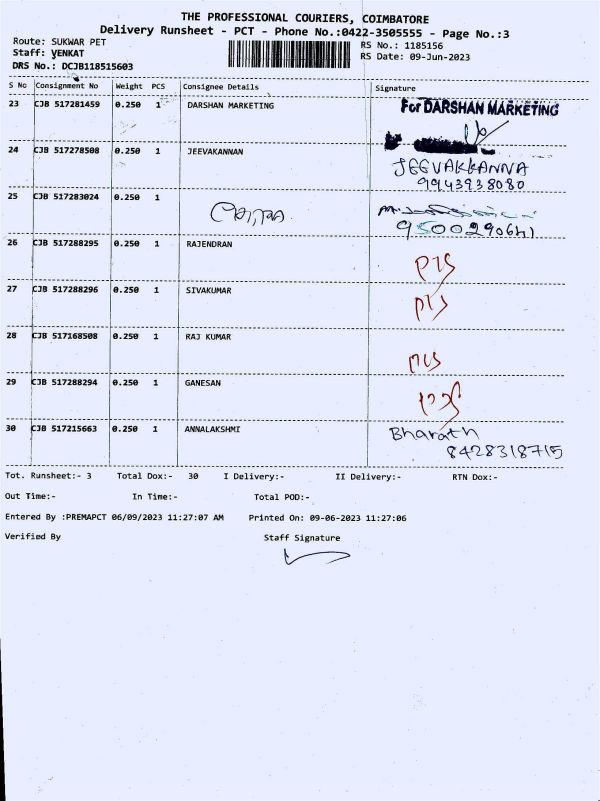 THE PROFESSIONAL COURIERS, COIMBATORE
Delivery Runsheet - PCT - Phone No.:0422-3505555 - Page No.:3
Route: SUKWAR PET
RS No.: 1185156
Staff: VENKAT
RS Date: 09-Jun-2023
DRS No.: DCJB118515603
S No Consignment No Weight PCS Consignee Details Signature
23 CJB 517281459 0.250 1 DARSHAN MARKETING For DARSHAN MARKETING
24 CJB 517278508 0.250 1 JEEVAKANNAN JEEVAKKANNA
9943938080
25 CJB 517283024 0.250 1
9500290641
26 CJB 517288295 0.250 1 RAJENDRAN
27 CJB 517288296 0.250 1 SIVAKUMAR
28 CJB 517168508 0.250 1 RAJ KUMAR
29 CJB 517288294 0.250 1 GANESAN
30 CJB 517215663 0.250 1 ANNALAKSHMI Bharath
8428318715
Tot. Runsheet:- 3 Total Dox:- 30 I Delivery:- II Delivery:- RTN Dox:-
Out Time:- In Time:- Total POD:-
Entered By :PREMAPCT 06/09/2023 11:27:07 AM Printed On: 09-06-2023 11:27:06
Verified By Staff Signature